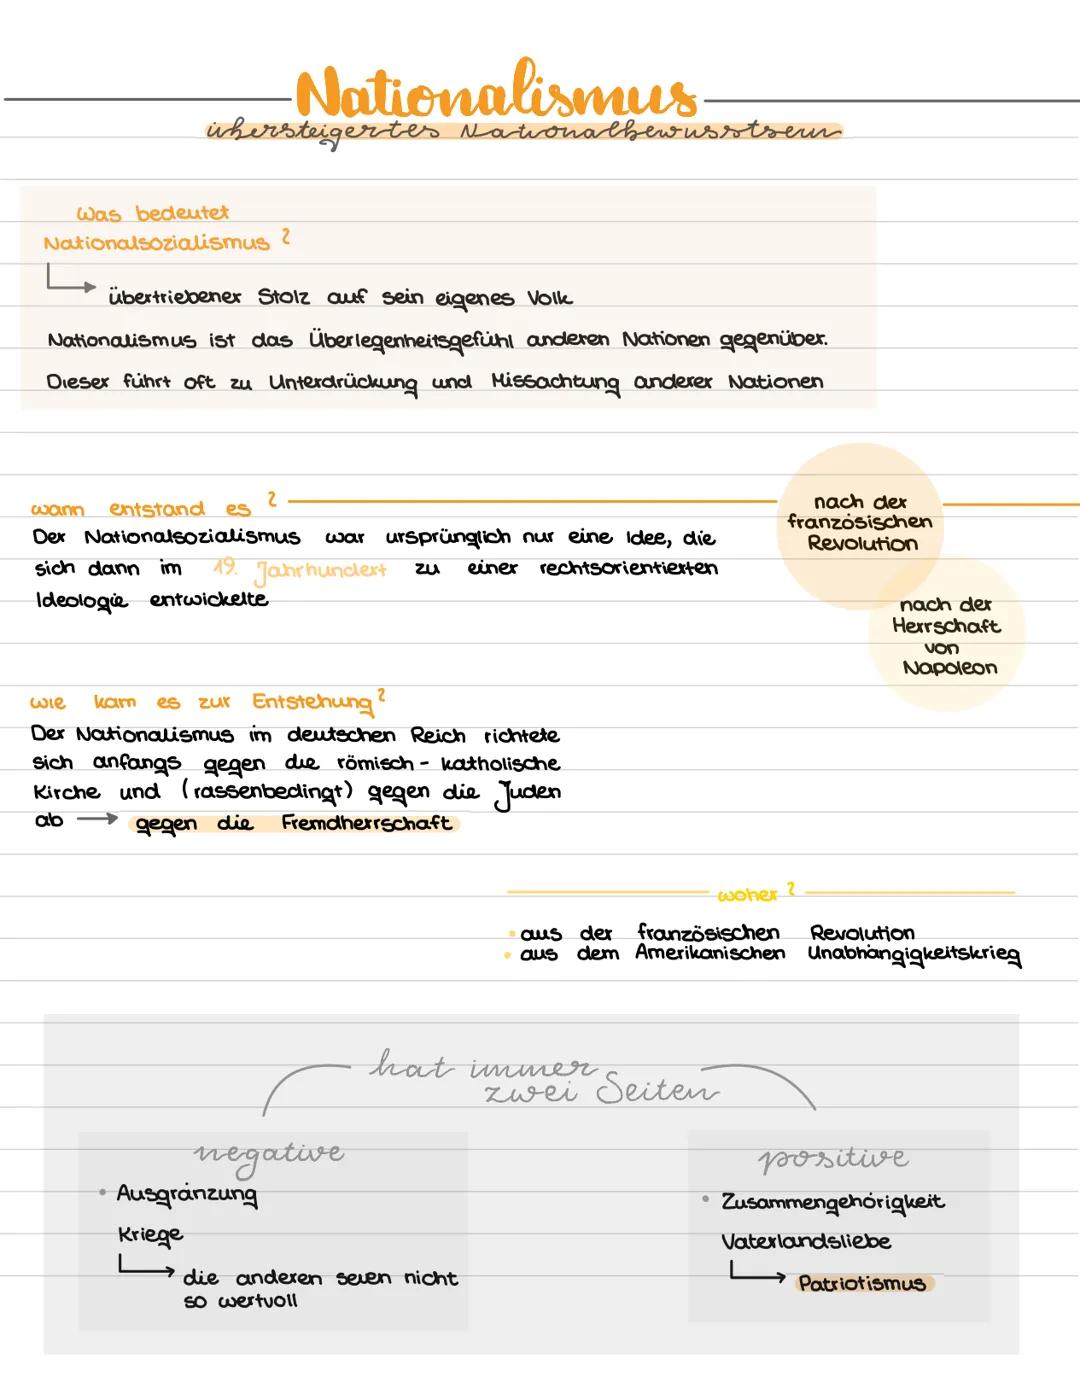 Nationalismus
übersteigertes Nationalbewusstsein
Was bedeutet
Nationalsozialismus ?
übertriebener Stolz auf sein eigenes Volk
Nationalismus ist das Überlegenheitsgefühl anderen Nationen gegenüber.
Dieser führt oft zu Unterdrückung und Missachtung anderer Nationen
wann entstand es ?
Der Nationalsozialismus war ursprünglich nur eine Idee, die
sich dann im 19. Jahrhundert zu einer rechtsorientierten
Ideologie entwickelte
nach der
französischen
Revolution
nach der
Herrschaft
von
Napoleon
wie kam es zur Entstehung ?
Der Nationalismus im deutschen Reich richtete
sich anfangs gegen die römisch - katholische
Kirche und (rassenbedingt) gegen die Juden
ab → gegen die Fremdherrschaft
woher ?
• aus der französischen Revolution
• aus dem Amerikanischen Unabhängigkeitskrieg
hat immer
zwei Seiten
negative
• Ausgränzung
Kriege
die anderen seien nicht
so wertvoll
positive
• Zusammengehörigkeit
Vaterlandsliebe
Patriotismus